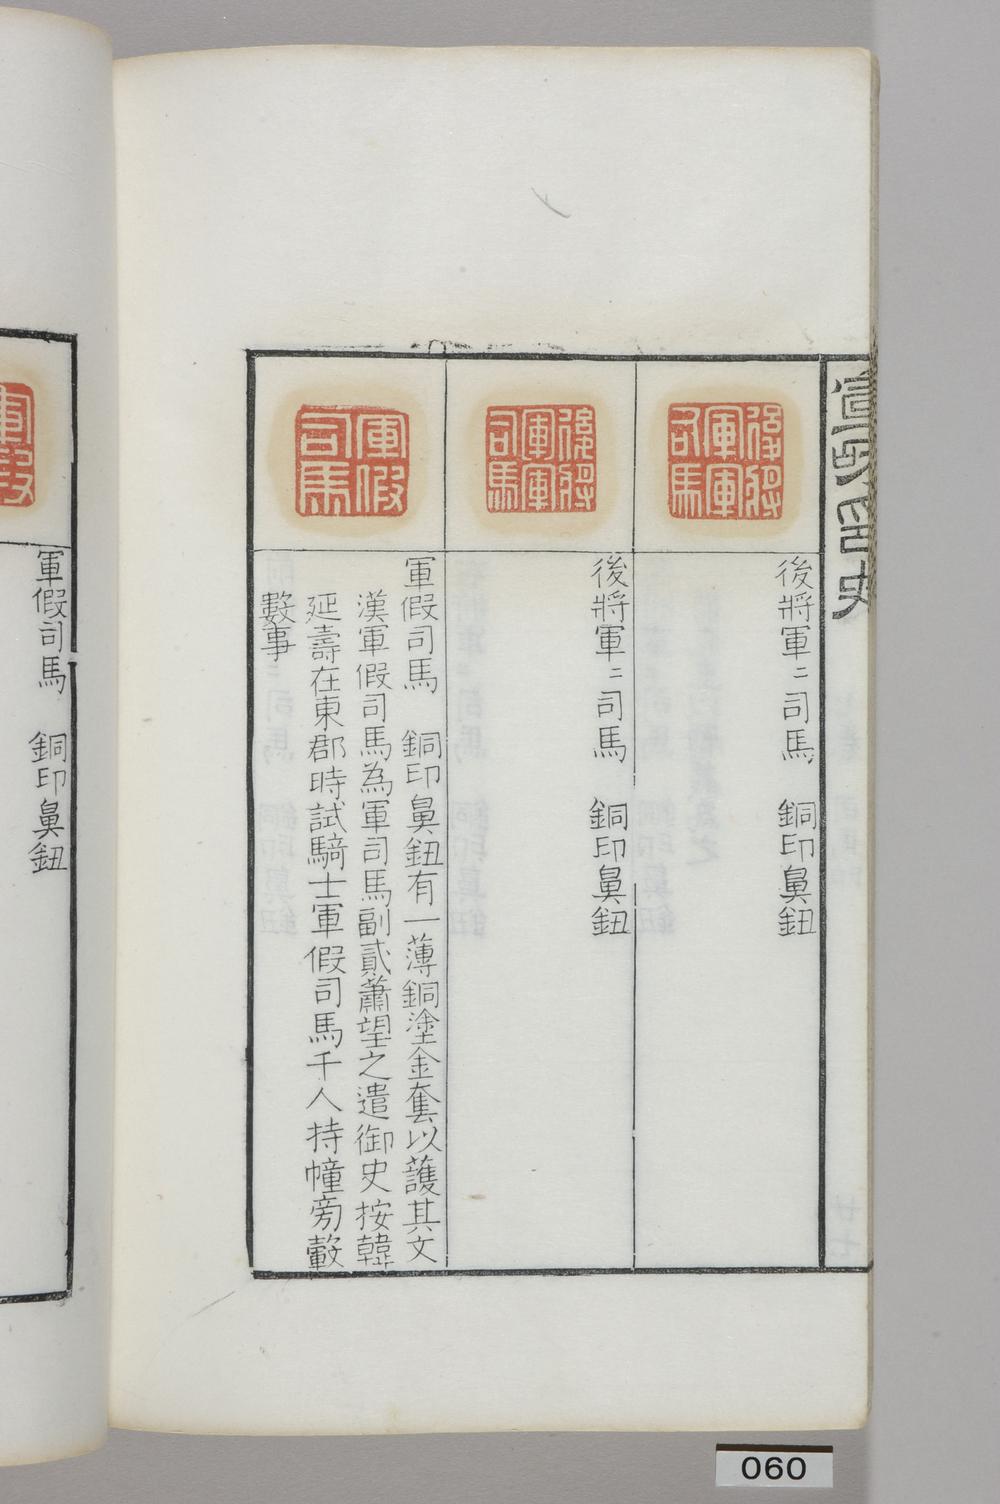 後將
軍軍
司馬
後將軍〻司馬 銅印鼻鈕
後將
軍軍
司馬
後將軍〻司馬 銅印鼻鈕
軍假
司馬
軍假司馬 銅印鼻鈕有一薄銅塗金套以護其文
漢軍假司馬為軍司馬副貳蕭望之遣御史按韓
延壽在東郡時試騎士軍假司馬千人持幢旁轂
數事
軍假
軍假司馬 銅印鼻鈕
060